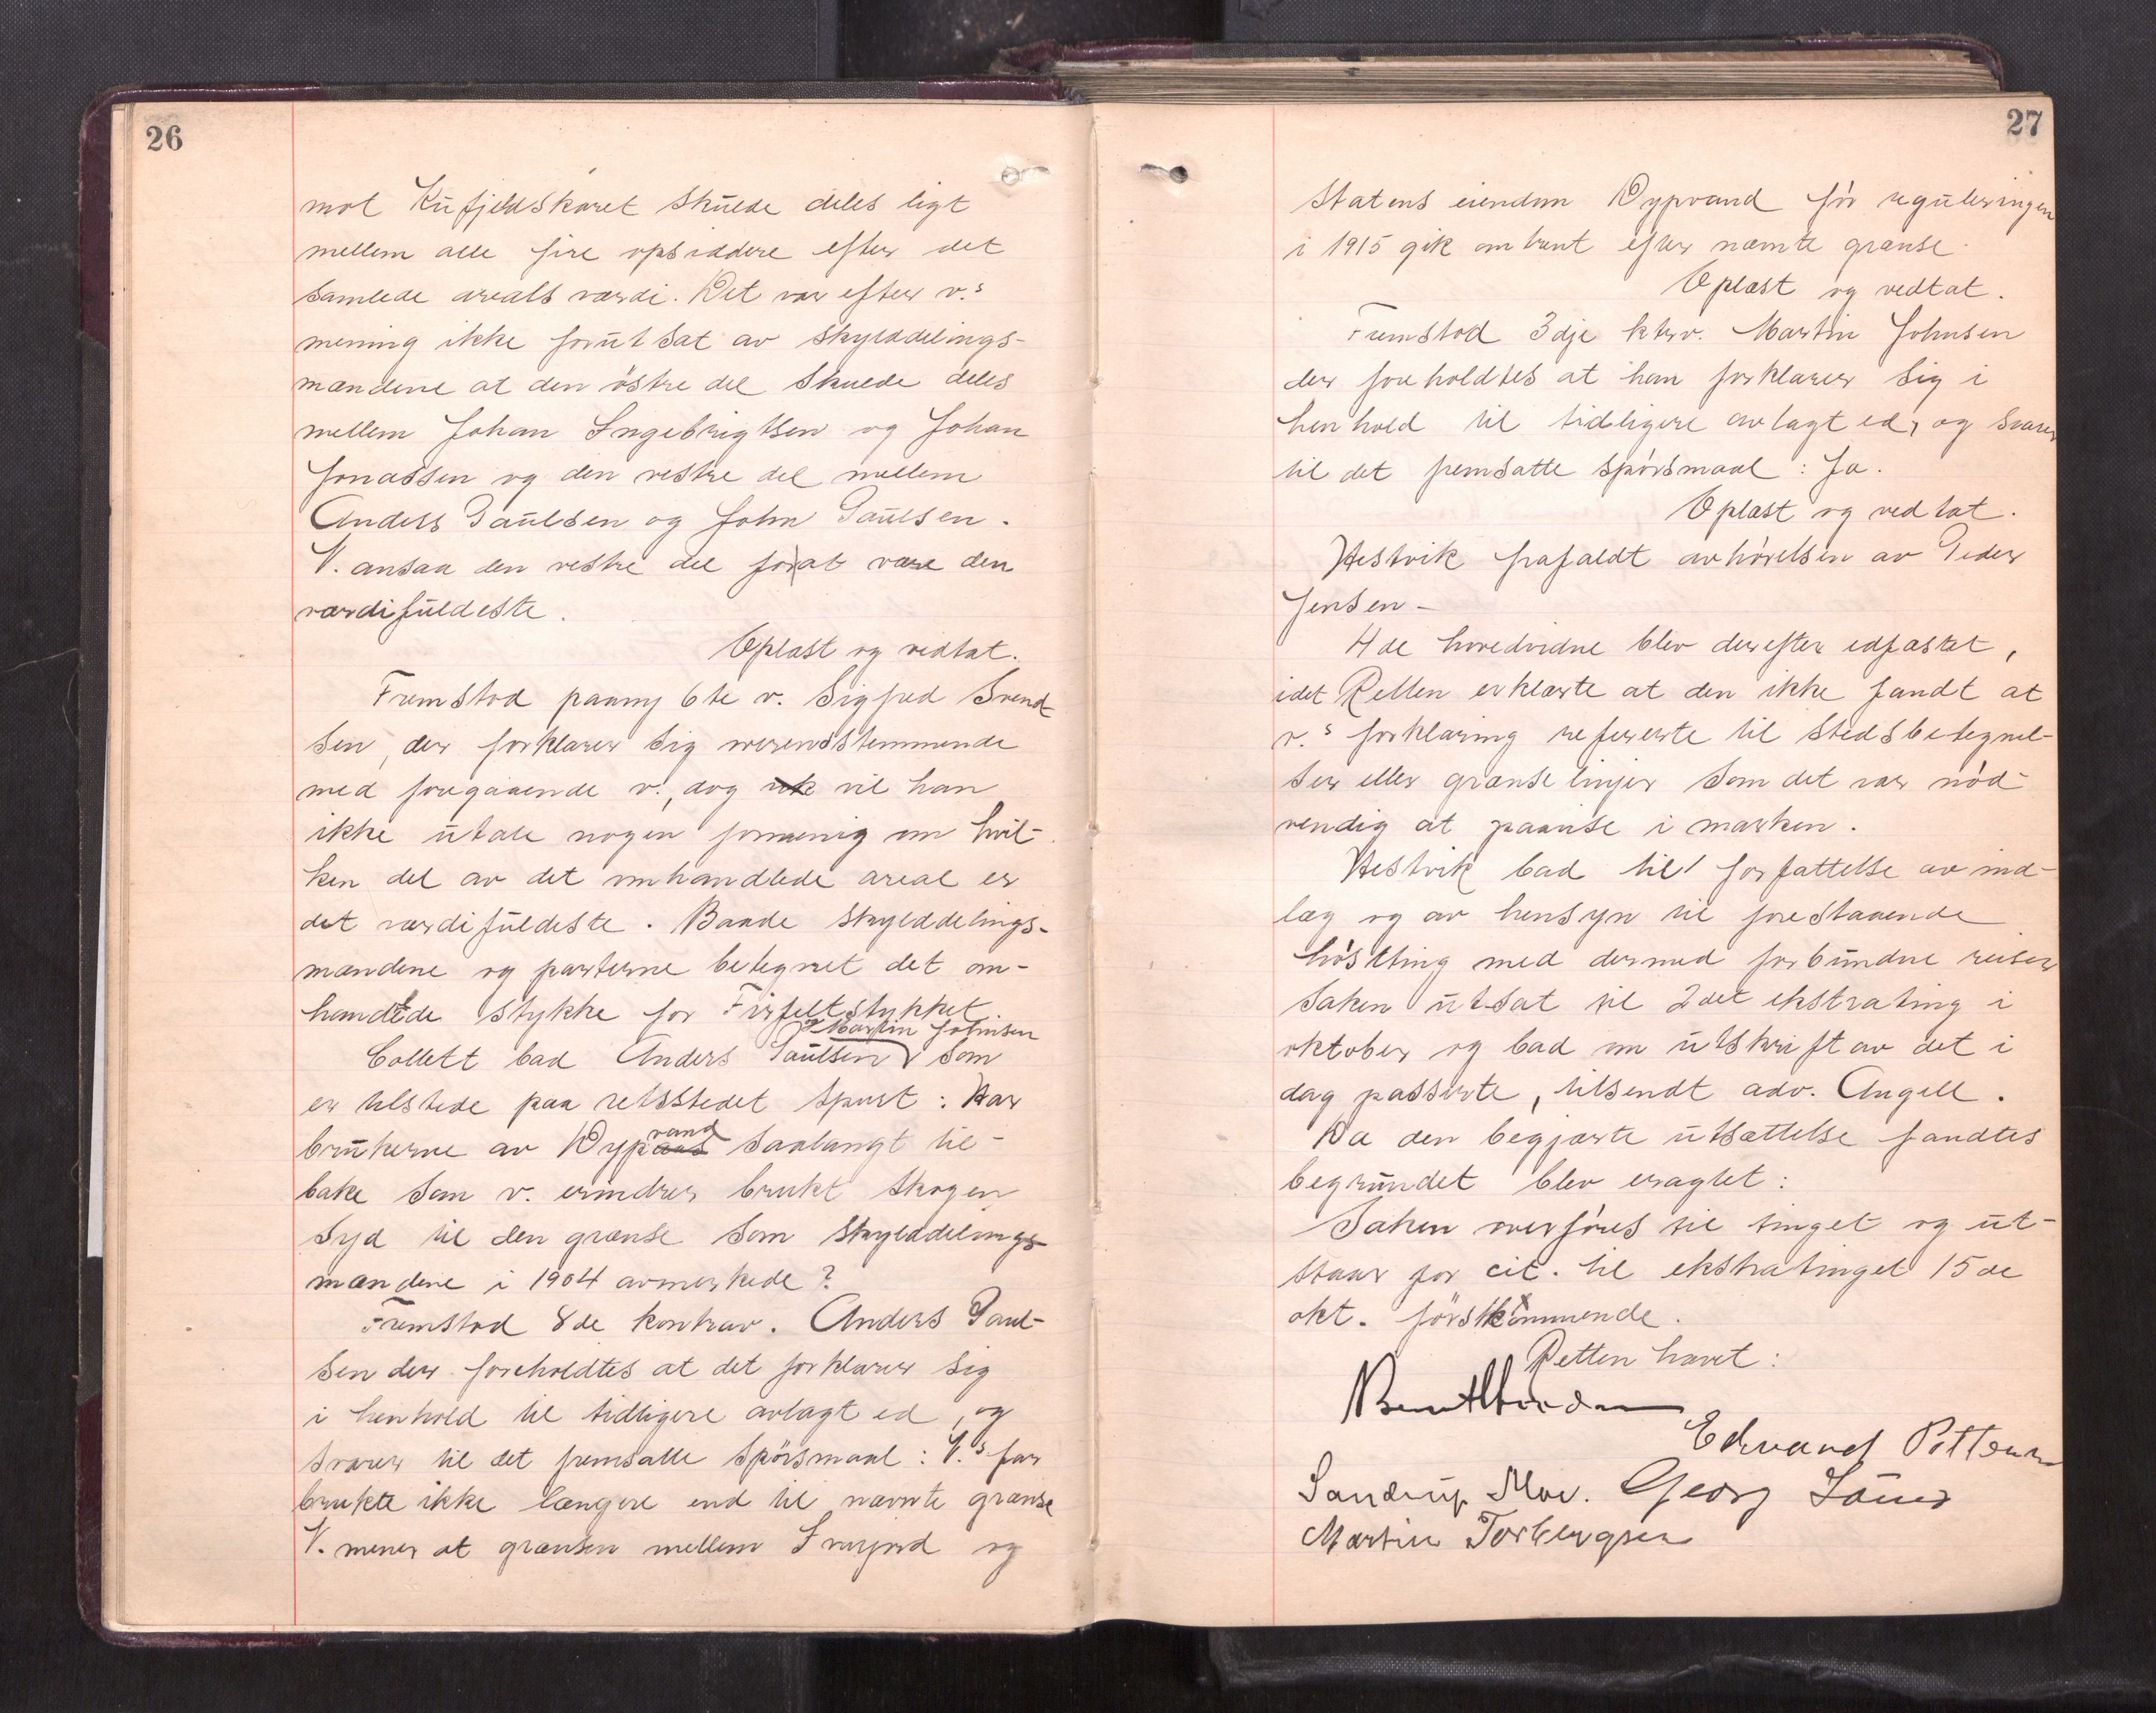 26
mot Kufjeldskaret skulde deles ligt
mellem alle fire opsiddere efter det
samlede arealsværdi. Det var efter v.s
mening ikke forutsat av skylddelings-
mændene at den østre del skulde deles
mellem Johan Ingebrigtsen og Johan
Jonassen og den vestre del mellem
Anders Paulsen og John Paulsen.
V. ansaa den vestre del for at være den
værdifuldeste.
Oplæst og vedtat.
Fremstod paany 6te v. Sigfred Svend-
sen, der forklarer sig overensstemmende
med foregaaende v., dog vil han
ikke uttale nogen formening om hvil-
ken del av det omhandlede areal er
det værdifuldeste. Baade skylddelings-
mændene og parterne betegnet det om-
handlede stykke for Firfeltstykket
& Martin Johnsen
Collett bad Anders Paulsen som
er tilstede paa retsstedet spurt: Har
vand
brukerne av Dypaas saalangt til-
bake som v. erindrer brukt skogen
syd til den grænse som skylddelings-
mændene i 1904 avmerkede?
Fremstod 8de kontrav. Anders Paul-
sen der foreholdtes at det forklarer sig
i henhold til tidligere avlagt ed, og
svarer til det fremsatte spörsmaal: V.s far
brukte ikke længere end til nævnte grænse
V. mener at grænsen mellem Snerjord og
27
Statens eiendom Dypvand før reguleringen
i 1915 gik omtrent efter nævnte grænse.
Oplæst og vedtat.
Fremstod 3dje ktrv. Martin Johnsen
der foreholdtes at han forklarer sig i
henhold til tidligere avlagt ed, og svarer
til det fremsatte spørsmaal: Ja.
Oplæst og vedtat.
Hestvik frafaldt avhørelsen av Peder
Jensen –
4de hovedvidne blev derefter edfæstet,
idet Retten erklærte at den ikke fandt at
v.s forklaring refererte til stedsbetegnel-
ser eller grænselinjer som det var nød-
vendig at paavise i marken.
Hestvik bad til forfattelse av ind-
læg og av hensyn til forestaaende
høstting med dermed forbundne reiser
saken utsat til 2det ekstrating i
oktober og bad om utskrift av det i
dag passerte, tilsendt adv. Angell.
Da den begjærte utsættelse fandtes
begrundet blev eragtet:
Saken overføres til tinget og ut-
staar for cit. til ekstratinget 15de
okt. førstkommende.
Retten hævet:
Edvard Pettersen
Sandrup Moe. Georg
Martin Torbergsen